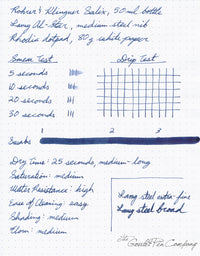 Rohrer & Klingner Salix, 50ml bottle
Lamy Al-Star, medium steel nib
Rhodia dotpad, 80g white paper
Smear Test
Drip Test
5 seconds
10 seconds
20 seconds
30 seconds
1 2 3
Swabs
Dry Time: 25 seconds, medium-long
Saturation: medium
Water Resistance: high
Ease of Cleaning: easy
Shading: medium
Flow: medium
Lamy steel extra-fine
Lamy steel broad
the Goulet Pen Company